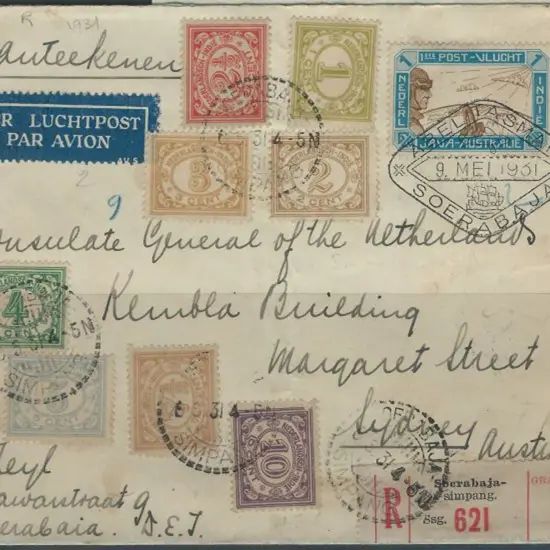 R 1931
anteekenen
R LUCHTPOST
PAR AVION
AVS
2
9
2½
1
3
CENT
2
CENT
1STE POST-VLUCHT
1
1
NEDERL
INDIE
JAVA-AUSTRALIË
9. MEI.1931
SOERABAJA
onsulate General of the Netherlands
Kembla Building
Margaret Street
Sydney
Austr
4
CENT
4-5N
SIMPANG
6.5.31 4-5N
SIMPANG
10
NEDERLANDSCH
eyl
awarstraat 9
erabaia D.E.I.
R
Soerabaja-
simpang.
Ssg. 621